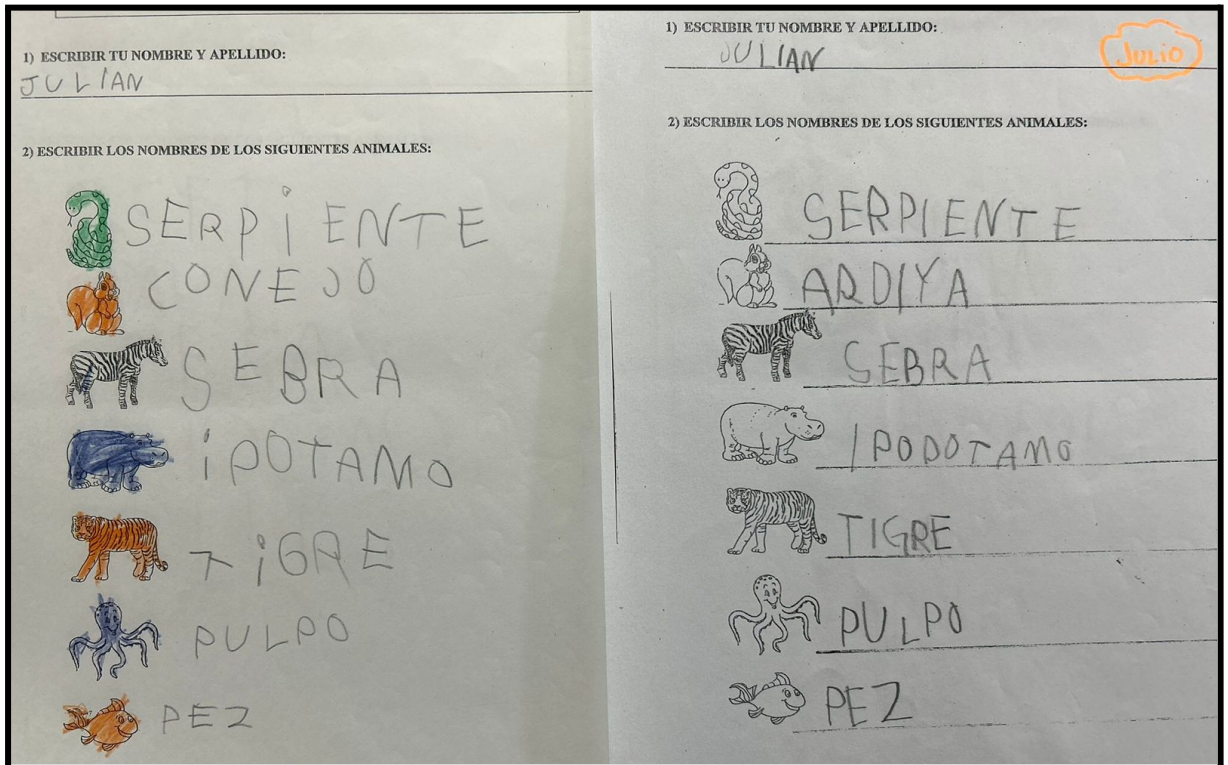 1) ESCRIBIR TU NOMBRE Y APELLIDO:
JULIAN
2) ESCRIBIR LOS NOMBRES DE LOS SIGUIENTES ANIMALES:
SERPiENTE
CONEJO
SEBRA
iPOTAMO
TiGRE
PULPO
PEZ
1) ESCRIBIR TU NOMBRE Y APELLIDO:
JULIAN
JULIO
2) ESCRIBIR LOS NOMBRES DE LOS SIGUIENTES ANIMALES:
SERPIENTE
ARDIYA
SEBRA
IPODOTAMO
TIGRE
PULPO
PEZ